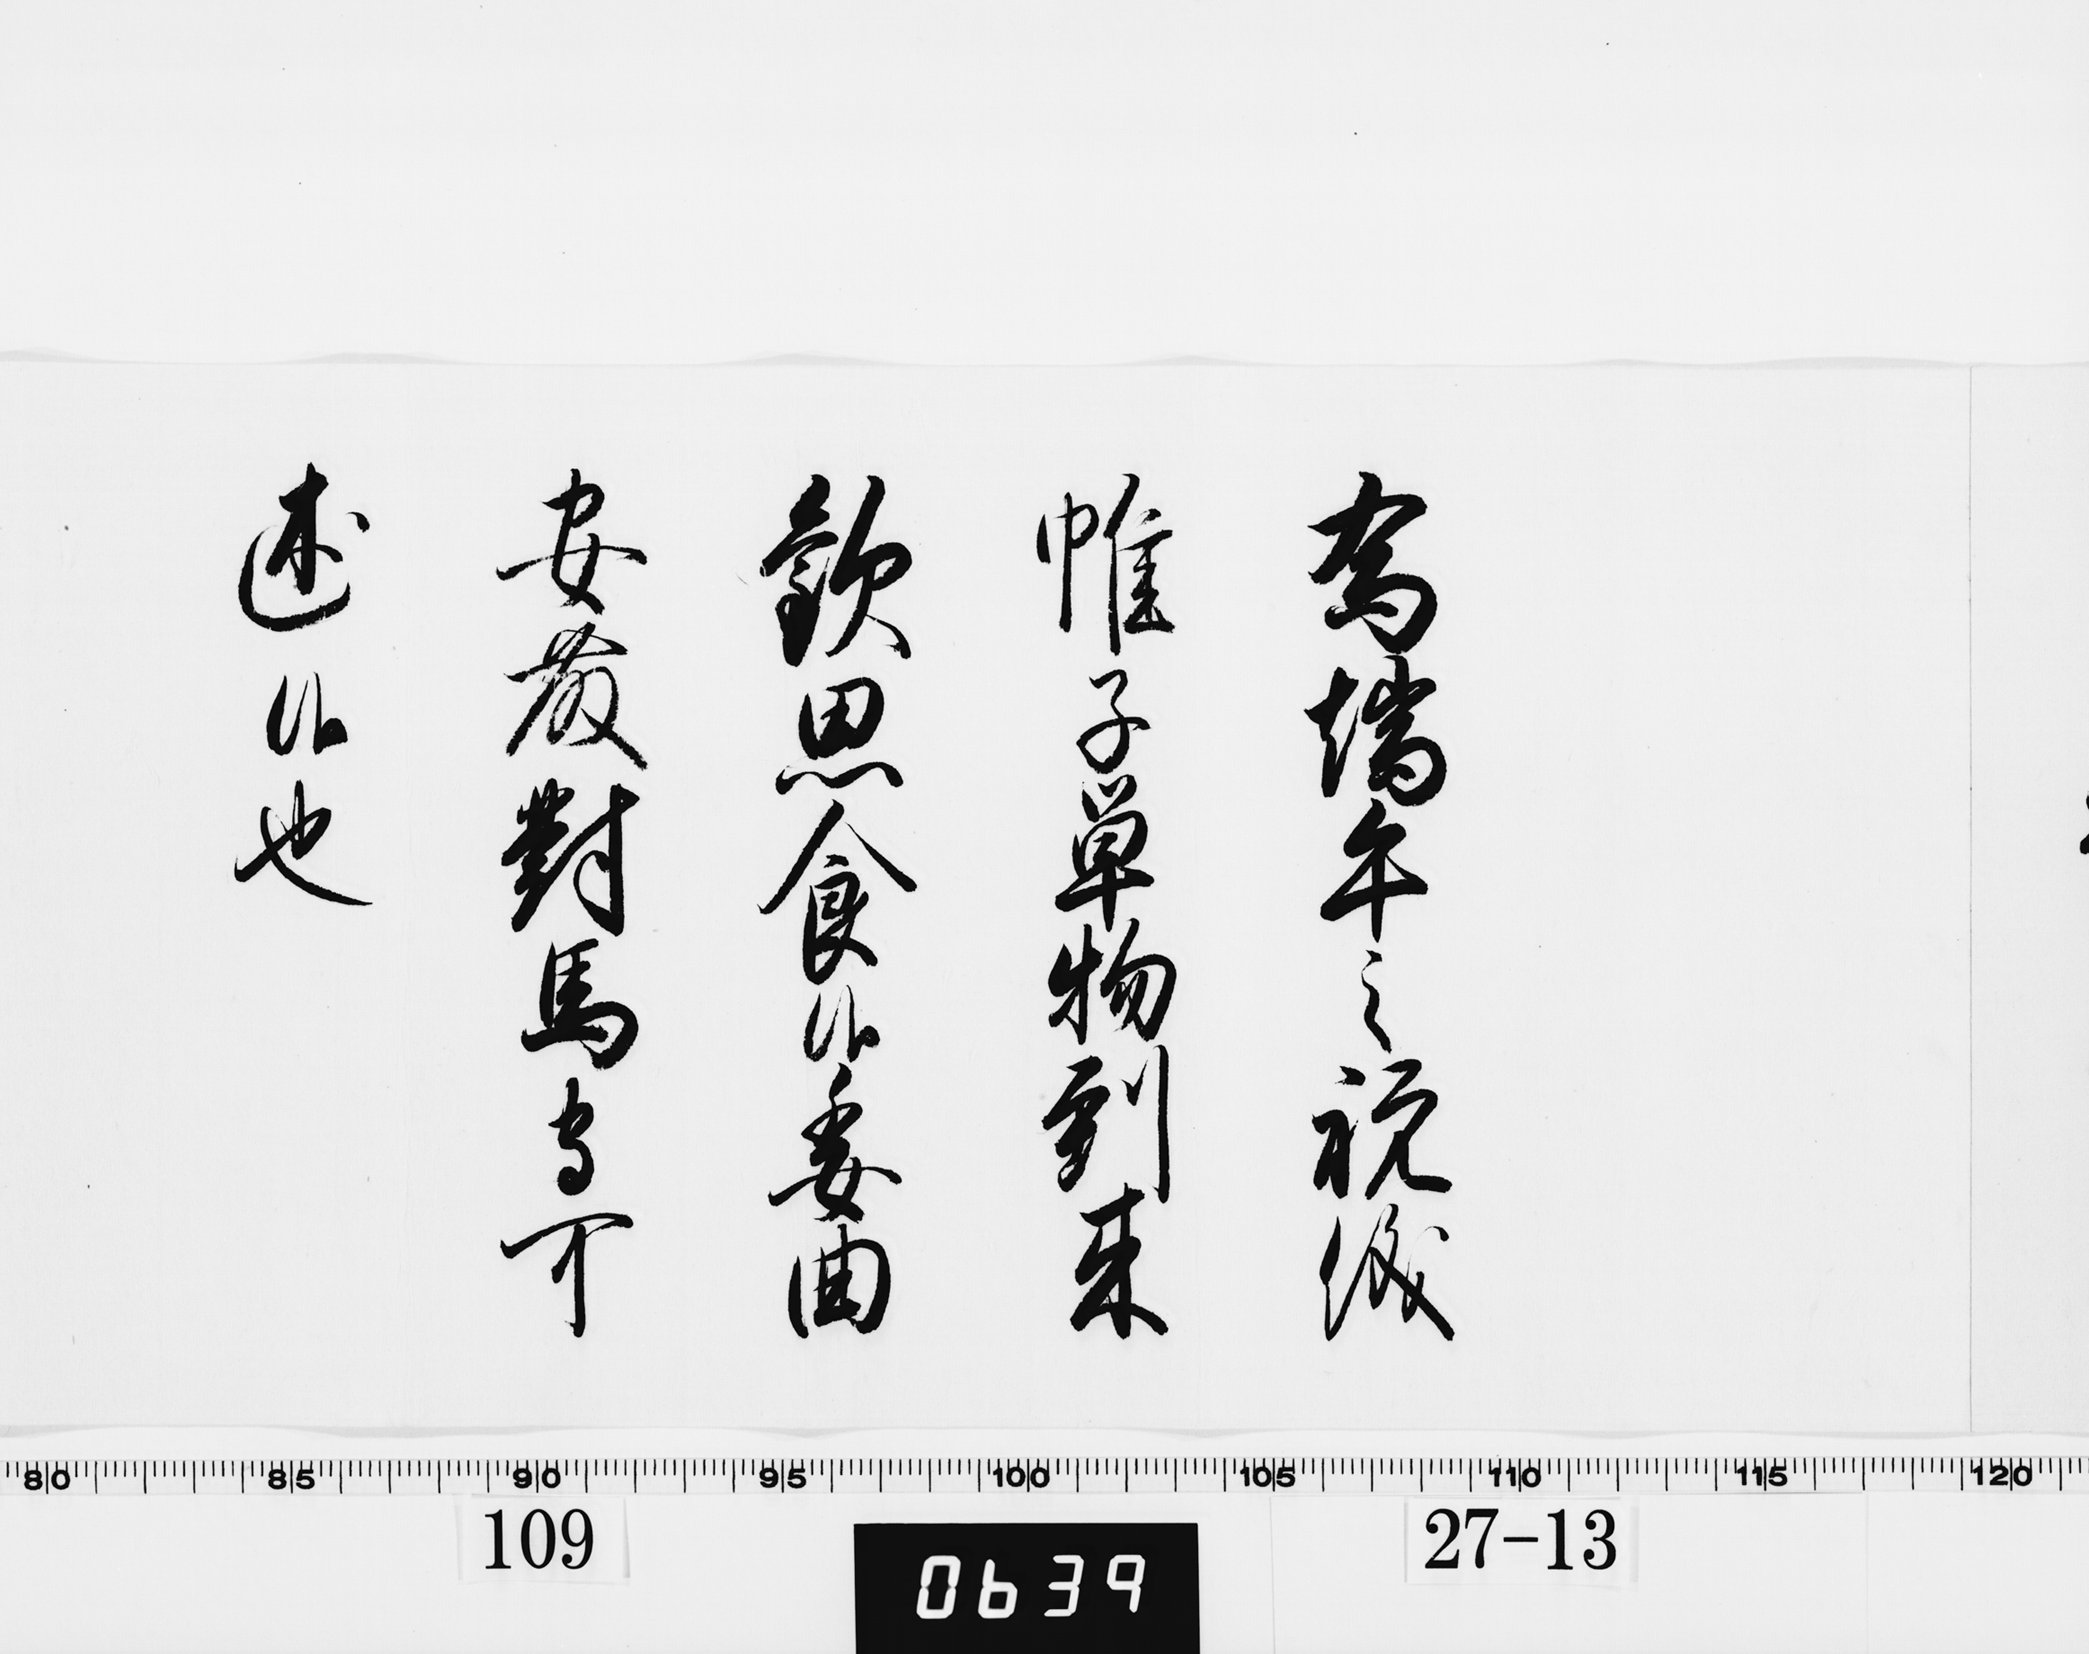 為端午之祝儀
帷子単物到来
歓思食候委曲
安藤對馬守可
述候也
80 85 90 95 100 105 110 115 120
109
0639
27-13